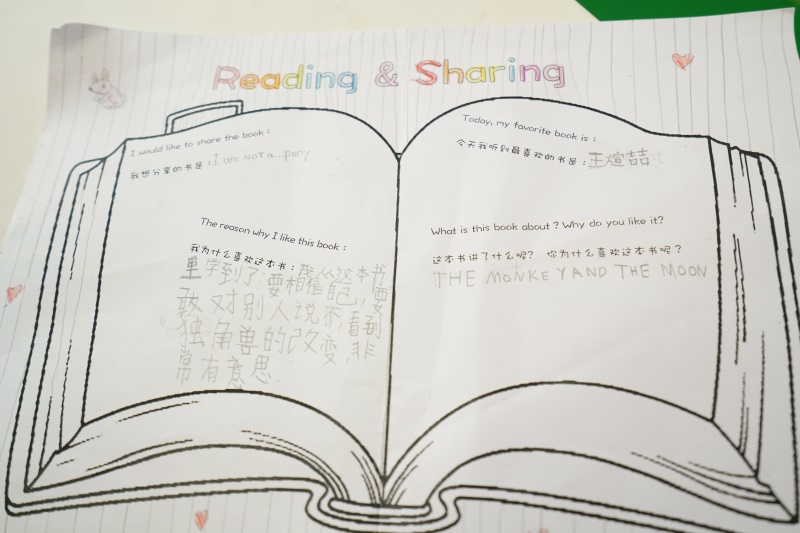 Reading & Sharing
I would like to share the book :
我想分享的书是 : I am NOT a...pony
The reason why I like this book :
我为什么喜欢这本书 :
我从这本书
里学到了:要相信自己,要
敢对别人说不,看到
独角兽的改变,非
常有意思
Today, my favorite book is :
今天我听到最喜欢的书是 : 王煊喆
What is this book about ? Why do you like it?
这本书讲了什么呢? 你为什么喜欢这本书呢 ?
THE MONKEY AND THE MOON